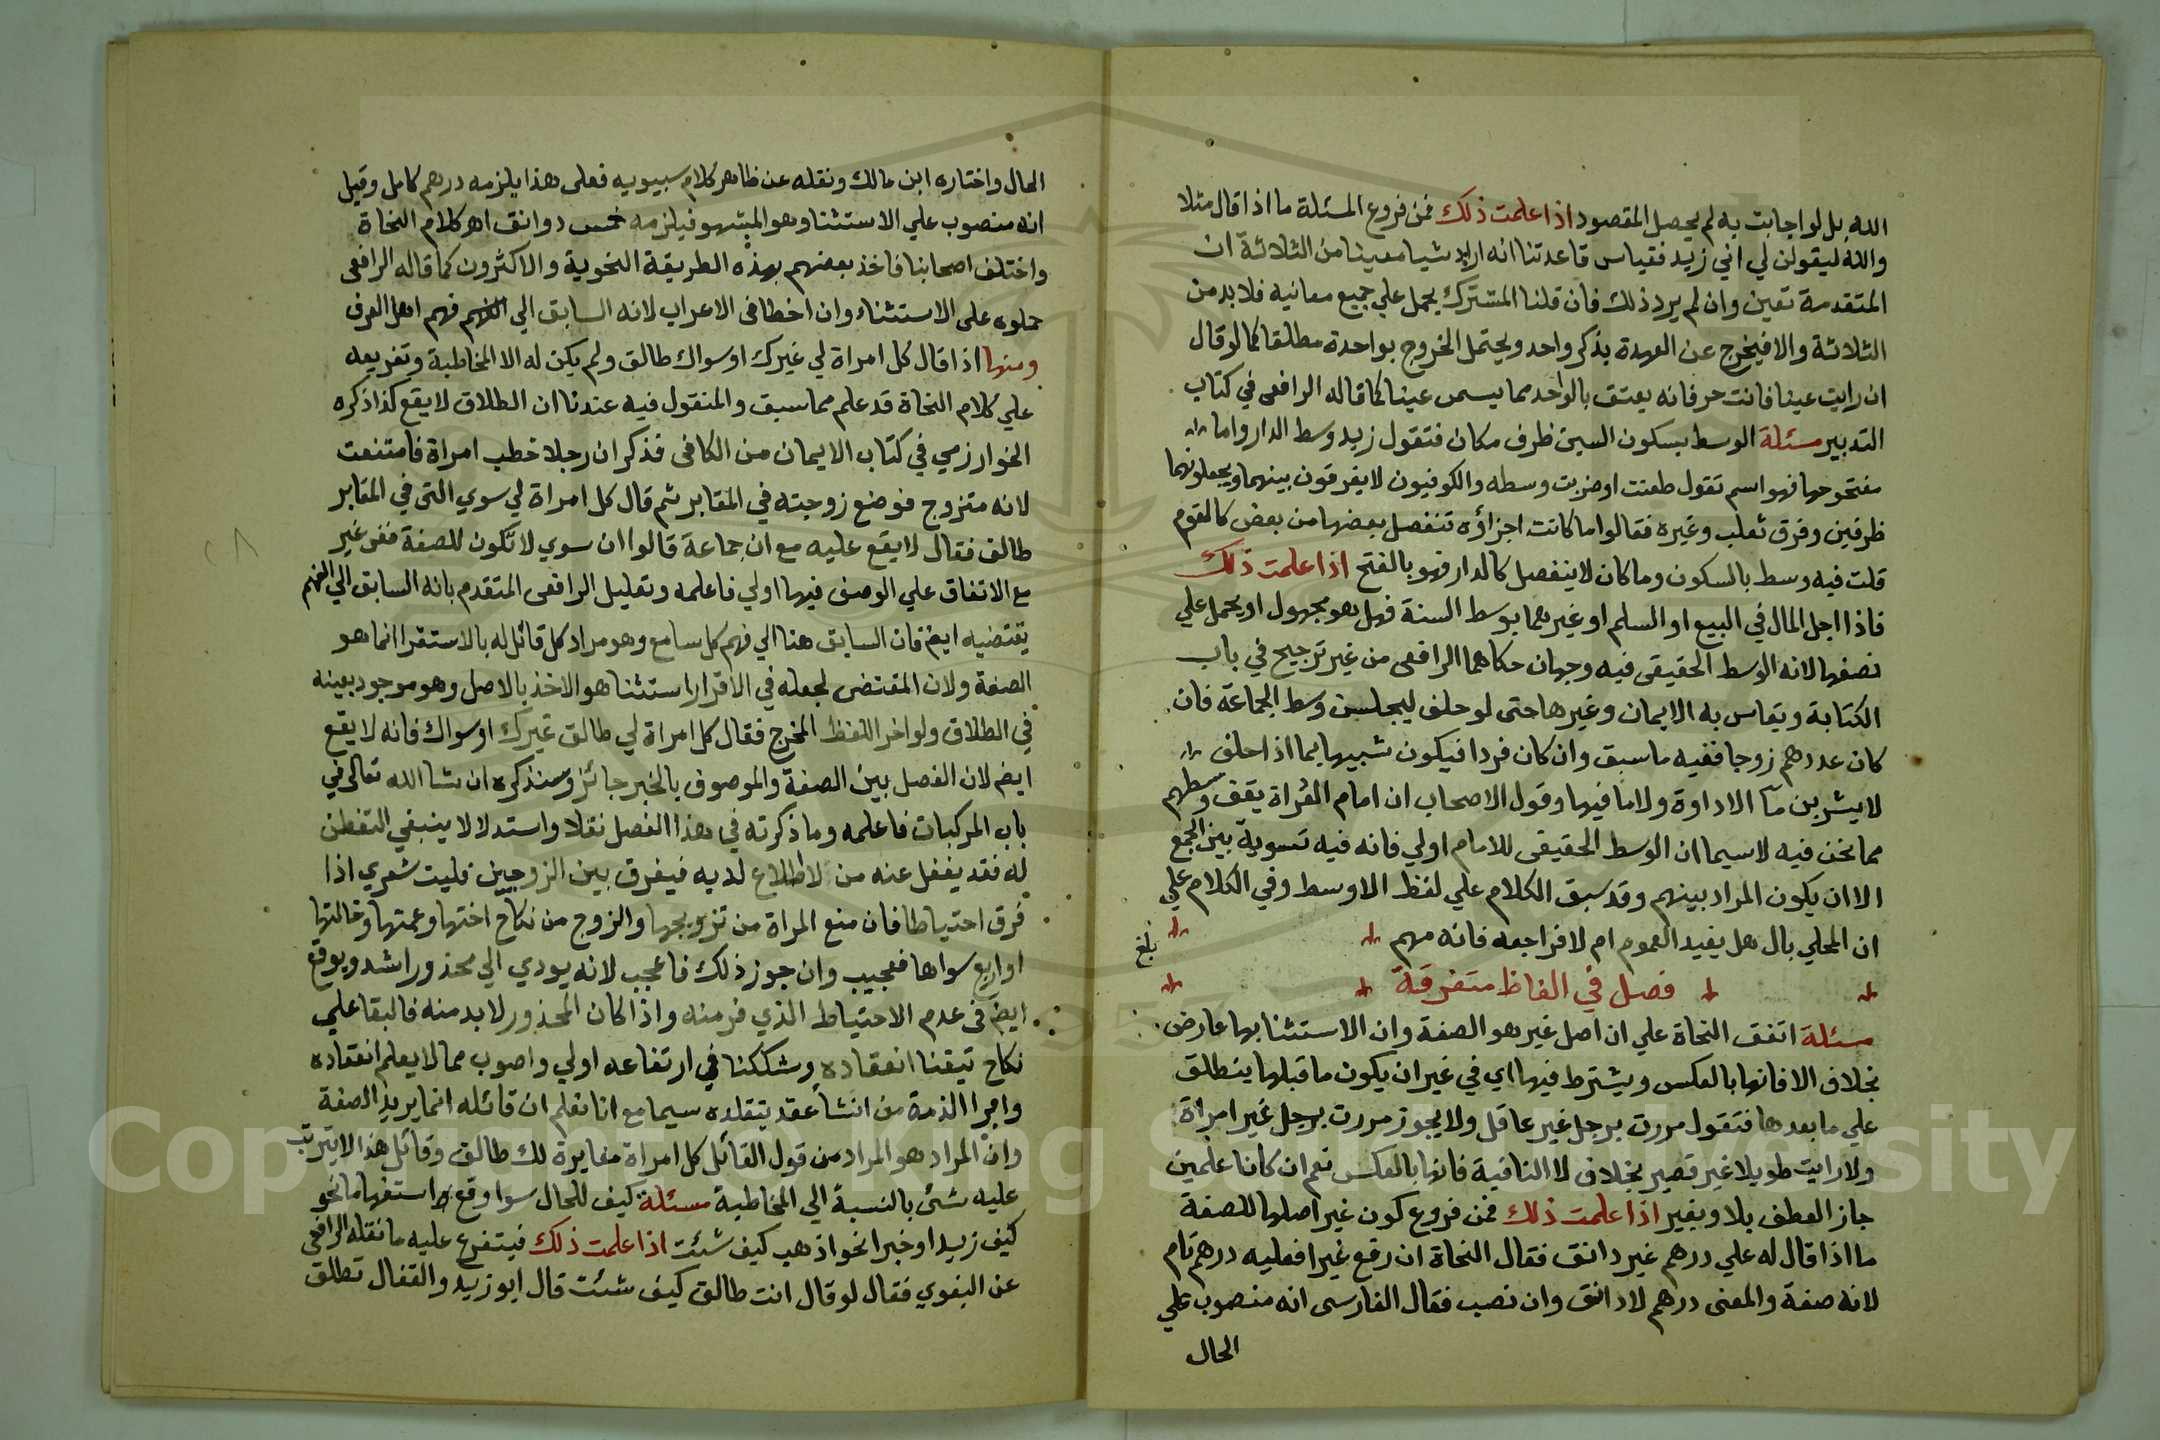 الله بل لو اجابت به لم يحصل المقصود اذا علمت ذلك فمن فروع المسئلة ما اذا قال مثلا
والله ليقولن لي اني زيد فقياس قاعدتنا انه اراد شيا معينا من الثلاثة ان
المتقدمة تعين وان لم يرد ذلك فان قلنا المشترك يحمل علي جميع معانيه فلا بد من
الثلاثة والا فيخرج عن العهدة بذكر واحد ويحتمل الخروج بواحدة مطلقا كما لو قال
ان رايت عينا فانت حر فانه يعتق بالواحد مما يسمي عينا كما قاله الرافعي في كتاب
التدبير مسئلة الوسط بسكون السين ظرف مكان فتقول زيد وسط الدار واما
مفتوحها فهو اسم تقول طعنت او ضربت وسطه والكوفيون لا يفرقون بينهما ويجعلونهما
ظرفين وفرق ثعلب وغيره فقالوا ما كانت اجزاؤه تنفصل بعضها من بعض كالقوم
قلت فيه وسط بالسكون وما كان لا ينفصل كالدار فهو بالفتح اذا علمت ذلك
فاذا اجل المال في البيع او السلم او غيرهما بوسط السنة فهل هو مجهول او يحمل علي
نصفها لانه الوسط الحقيقي فيه وجهان حكاهما الرافعي من غير ترجيح في باب
الكتابة ويقاس به الايمان وغيرها حتى لو حلف ليجلسن وسط الجماعة فان
كان عددهم زوجا ففيه ما سبق وان كان فردا فيكون شبيها بما اذا حلف
لا يشربن مآ الاداوة ولا ما فيها وقول الاصحاب ان امام العراة يقف وسطهم
مما نحن فيه لاسيما ان الوسط الحقيقي للامام اولي فانه فيه تسوية بين الجمع
الا ان يكون المراد بينهم وقد سبق الكلام علي لفظ الاوسط وفي الكلام علي
ان المحلي بال هل يفيد العموم ام لا فراجعه فانه مهم
بلغ
فصل في الفاظ متفرقة
مسئلة اتفق النحاة علي ان اصل غير هو الصفة وان الاستثنا بها عارض
بخلاف الا فانها بالعكس ويشترط فيها اي في غير ان يكون ما قبلها ينطلق
علي ما بعدها فتقول مررت برجل غير عاقل ولا يجوز مررت برجل غير امراة
ولا رايت طويلا غير قصير بخلاف لا النافية فانها بالعكس نعم ان كانا علمين
جاز العطف بلا وبغير اذا علمت ذلك فمن فروع كون غير اصلها للصفة
ما اذا قال له علي درهم غير دانق فقال النحاة ان رفع غيرا فعليه درهم تام
لانه صفة والمعنى درهم لا دانق وان نصب فقال الفارسي انه منصوب علي
الحال
الحال واختاره ابن مالك ونقله عن ظاهر كلام سيبويه فعلى هذا يلزمه درهم كامل وقيل
انه منصوب علي الاستثنا وهو المشهور فيلزمه خمس دوانق اهـ كلام النحاة
واختلف اصحابنا فاخذ بعضهم بهذه الطريقة النحوية والاكثرون كما قاله الرافعي
حملوه على الاستثناء وان اخطا في الاعراب لانه السابق الي الفهم فهم اهل العرف
ومنها اذا قال كل امراة لي غيرك او سواك طالق ولم يكن له الا المخاطبة وتفريعه
علي كلام النحاة قد علم مما سبق والمنقول فيه عندنا ان الطلاق لا يقع كذا ذكره
الخوارزمي في كتاب الايمان من الكافي فذكر ان رجلا خطب امراة فامتنعت
لانه متزوج فوضع زوجته في المقابر ثم قال كل امراة لي سوي التي في المقابر
طالق فقال لا يقع عليه مع ان جماعة قالوا ان سوي لا تكون للصفة ففي غير
مع الاتفاق علي الوصف فيها اولي فاعلمه وتعليل الرافعي المتقدم بانه السابق الي الفهم
يقتضيه ايض فان السابق هنا الي فهم كل سامع وهو مراد كل قائل له بالاستقرا انما هو
الصفة ولان المقتضي لجعله في الاقرار استثنا هو الاخذ بالاصل وهو موجود بعينه
في الطلاق ولو اخر اللفظ المخرج فقال كل امراة لي طالق غيرك او سواك فانه لا يقع
ايض لان الفصل بين الصفة والموصوف بالخبر جائز وسنذكره ان شا الله تعالى في
باب المركبات فاعلمه وما ذكرته في هذا الفصل نقلا واستدلالا ينبغي التفطن
له فقد يغفل عنه من لا اطلاع لديه فيفرق بين الزوجين فليت شعري اذا
فرق احتياطا فان منع المراة من تزويجها والزوج من نكاح اختها وعمتها وخالتها
او اربع سواها فعجيب وان جوز ذلك فاعجب لانه يودي الي محذور اشد ويوقع
ايض في عدم الاحتياط الذي فر منه واذا كان المحذور لا بد منه فالبقا علي
نكاح تيقنا انعقاده وشككنا في ارتفاعه اولي واصوب مما لا يعلم انعقاده
وابرا الذمة من انشا عقد يتقلده سيما مع انا نعلم ان قائله انما يريد الصفة
وان المراد هو المراد من قول القائل كل امراة مغايرة لك طالق وقائل هذا لا يترتب
عليه شئ بالنسبة الي المخاطبة مسئلة كيف للحال سوا وقع استفهاما نحو
كيف زيد او خبرا نحو اذهب كيف شئت اذا علمت ذلك فيتفرع عليه ما نقله الرافعي
عن البغوي فقال لو قال انت طالق كيف شئت قال ابو زيد والقفال تطلق
Copyright © King Saud University